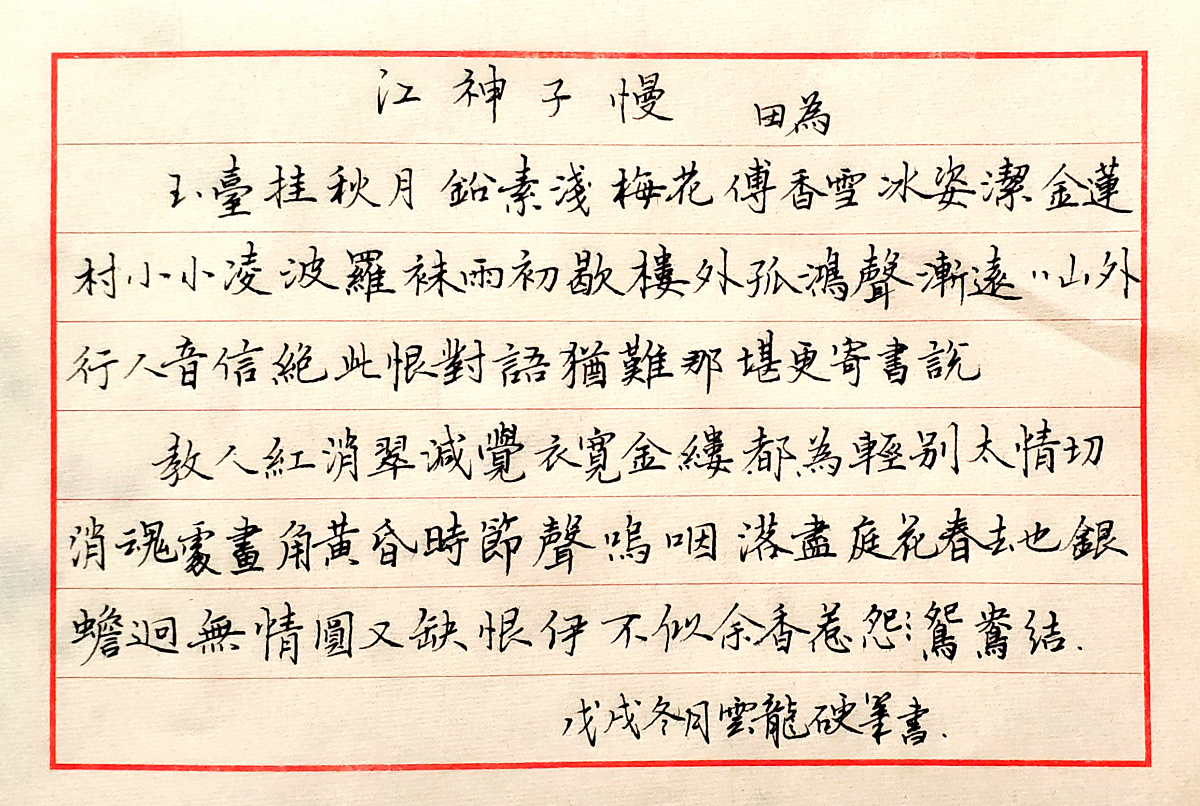 江神子慢 田為
玉臺挂秋月鉛素淺梅花傅香雪冰姿潔金蓮
村小小凌波羅袜雨初歇樓外孤鴻聲漸遠〃山外
行人音信絕此恨對語猶難那堪更寄書說
教人紅消翠減覺衣寬金縷都為輕別太情切
消魂處畫角黃昏時節聲嗚咽落盡庭花春去也銀
蟾迥無情圓又缺恨伊不似余香惹怨:鴛鴦結.
戊戌冬月雲龍硬筆書.